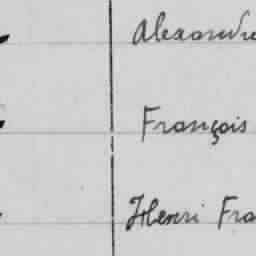 Alexandre
François
Henri Fra